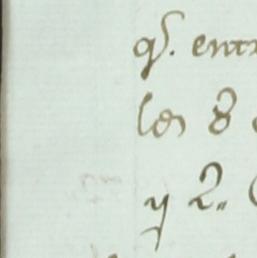 qᵉ. entr
les 8
y 2.,